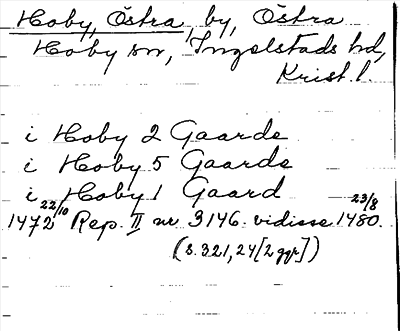 Hoby, Östra, by, Östra
Hoby sn, Ingelstads hd,
Krist. l.
i Hoby 2 Gaarde
i Hoby 5 Gaarde
i Hoby 1 Gaard
1472 22/10 Rep. II nr 3146. vidisse 1480 23/8
(s. 321, 24 [2 ggr])